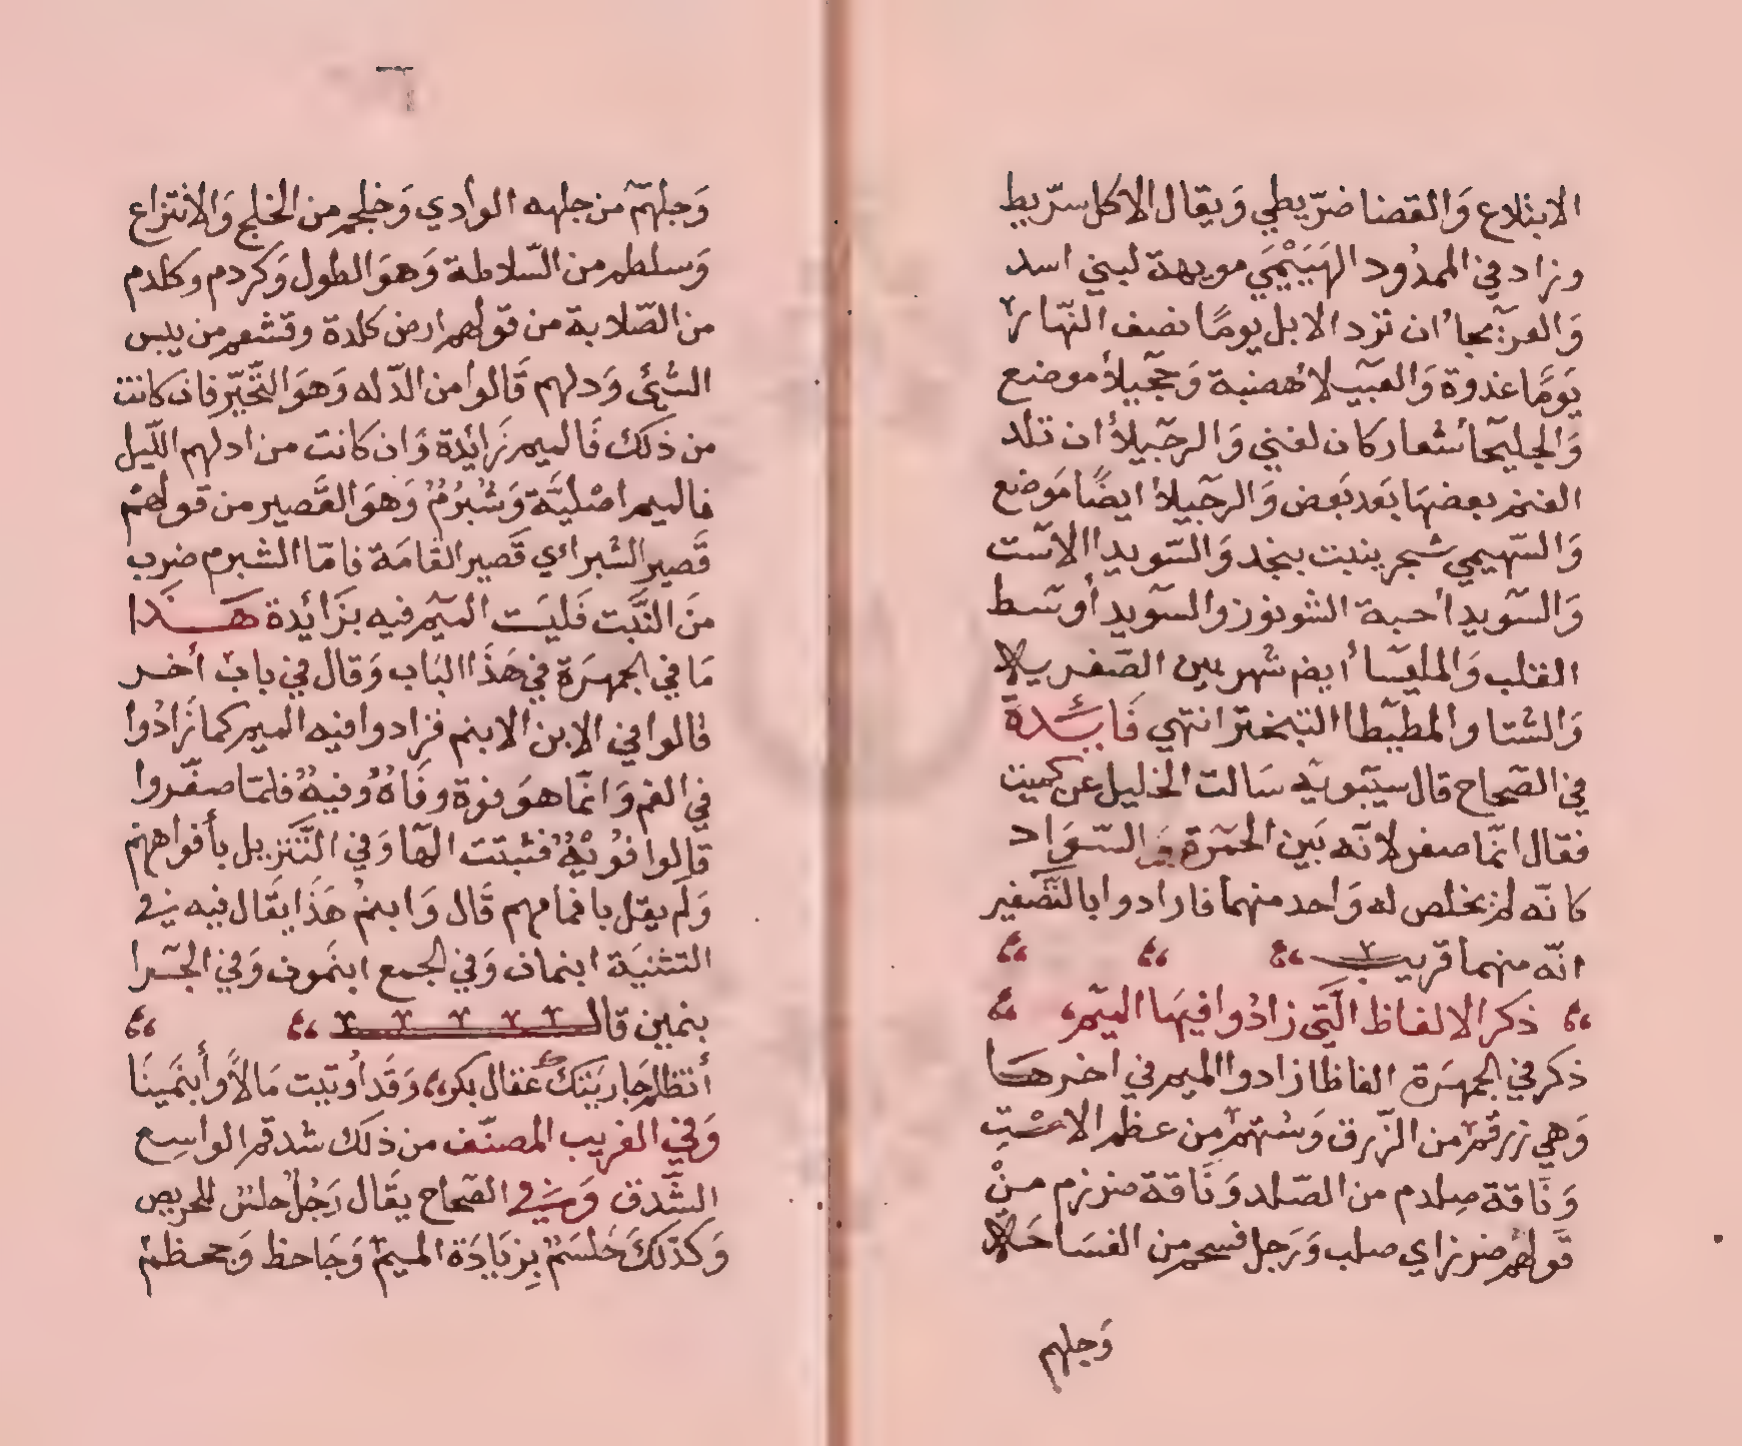 الابتلاع وَالقضا ضرّيطي وَيقال الاكل سرّيط
وزاد في الممدُود الهَيَيْمَي مويهة لبني اسد
وَالعرَيجاأن ترد الابل يومًا نصف النّهار
يَومًا غدوة وَالغبَيبلا هضبة وَحجَيلا موضع
وَالجليحا شعار كان لغني وَالرجَيلا أن تلد
الغنم بعضهَا بَعد بَعض وَالرجَيلا ايضًا مَوضع
وَالسّهيمي شجر ينبت بنجد وَالسّويدا الاسْت
وَالسّويدا حبة الشونوز والسّويدا وسَط
القلب وَالمليسا أيضم شهر بين الصّفرية
وَالشتا والمطيَطا التبختر انتهي فَائِدة
في الصّحاح قال سيّبويه سَالت الخليل عن كميت
فقال انّما صغر لانّه بَين الحمرة وَالسّوَاد
كانّه لم يخلص له وَاحد منهما فارادوا بالتّصغير
انّه منهما قريب
ذكر الالفاظ الّتي زادُوا فيهَا الميم
ذكر في الجمهرَة الفاظا زادوا الميم في اخرهَا
وَهي زرقم من الزّرق وَستهم من عظم الاسْتِ
وَنَاقة صِلدم من الصّلد وَنَاقة ضرزم منْ
قَولهم ضرز اي صلب وَرَجل فسحم من الفسَاحَة
وَجلهم
٦
وَجلهمٌ من جلهه الوادي وَخلجم من الخلج وَالانتزاع
وَسلطم من السّلاطة وَهوَ الطول وَكردم وكلدم
من الصّلابة من قولهم ارض كلدة وقشعم من يبس
الشّئ وَدلهم قَالوا من الدّله وَهوَ التّحيّر فان كانت
من ذلك فَالميم زَائدة وَان كانت من ادلهم اللّيل
فالميم اصْليَّة وَشُبرُمٌ وَهوَ القَصير من قولهمْ
قَصير الشبر اي قَصير القامَة فامّا الشبرم ضرب
منَ النَّبت فَليسَت الميم فيه بزَائدة هَذا
مَا في الجمهرَة في هَذَا البَاب وَقال في باب أخر
قالوا في الابن الابنم فزادوا فيه الميم كما زَادُوا
في الفم وَانّما هوَ فوة وفَاهٌ وُفيهٌ فلمّا صغّروا
قالوا فوُيْهٌ فثبتت الهَا وَفي التَّنزيل بأفواههم
وَلم يقل بافمامهم قَال وَابنمُ هَذَا يقَال فيه في
التثنيَة ابنمان وَفي الجمع ابنَمون وَفي الجرّا
بنمين قال
أتظلم جَاريَتكَ عقال بكر وَقَد أوتيت مَالاً وأبنمَينَا
وَفي الغريب المصنّف من ذلك شدقم الواسِع
الشّدق وَفي الصّحاح يقَال رَجُلٌ حلسٌ للحريص
وَكذلكَ حَلسَمٌ بزيَادَة الميمْ وَجَاحظ وَجحظمْ